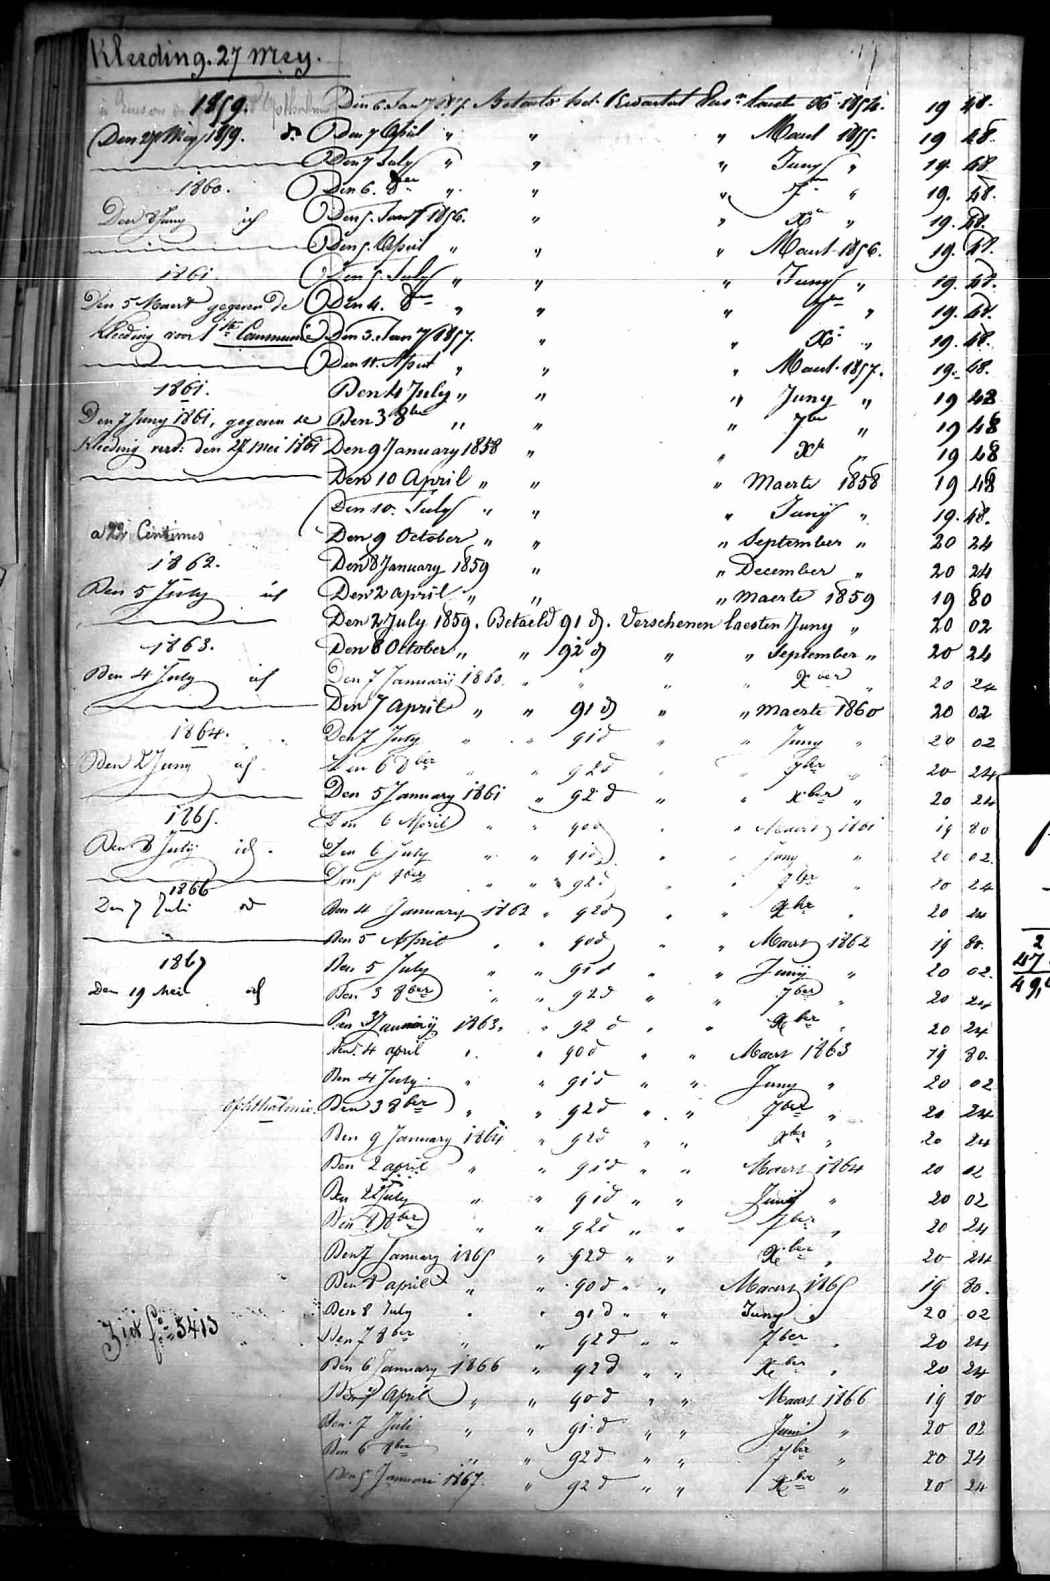 Kleeding. 27 Mey.
1859.
Den 27 Mey 1859. d°
1860.
Den 8 Juny id
1861
Den 5 Maert gegeven de
Kleeding voor 1ste Communie
1861.
Den 7 Juny 1861, gegeven de
Kleeding versch: den 27 Mei 1861
a 22 Centimes
1862.
Den 5 July id
1863.
Den 4 July id
1864.
Den 2 Juny id.
1865.
Den 8 July id.
1866
Den 7 Juli id
1867
Den 19 Mei id
Ophthalmie.
Ziet f° 5413
Betaelt het Kwartaal laeste Xbr 1854. 19 48.
Den 7 April " " " Maert 1855. 19 48.
Den 7 July " " " Juny " 19. 48
Den 6. 8ber " " " 7br " 19. 48.
Den 5. Jany 1856. " " Xbr " 19. 48.
Den 5. April " " " Maert 1856. 19. 48.
Den 5. July " " " Juny " 19. 48.
Den 4. 8br " " " 7br " 19. 48.
Den 3. Jany 1857. " " Xbr " 19. 48.
Den 11. April " " " Maert 1857. 19. 48.
Den 4 July " " " Juny " 19 48
Den 3 8ber " " " 7ber " 19 48
Den 9 January 1858 " " Xbr " 19 48
Den 10 April " " " Maerte 1858 19 48
Den 10. July " " " Junÿ " 19. 48.
Den 9 October " " " September " 20 24
Den 8 January 1859 " " December " 20 24
Den 2 April " " " Maerte 1859 19 80
Den 2 July 1859. Betaeld 91 d. Verschenen laesten Juny " 20 02
Den 8 October " " 92 d " " September " 20 24
Den 7 Januarij 1860. " " " " Xber " 20 24
Den 7 April " " 91 d " " Maerte 1860 20 02
Den 7 July " " 91 d " " Juny " 20 02
Den 6 8ber " " 92 d " " 7ber " 20 24
Den 5 January 1861 " 92 d " " Xber " 20 24
Den 6 April " " 90 d " " Maert 1861 19 80
Den 6 July " " 91 d " " Juny " 20 02.
Den 5 8ber " " 92 d " " 7ber " 20 24
Den 4 January 1862 " 92 d " " Xber " 20 24
Den 5 April " " 90 d " " Maert 1862 19 80.
Den 5 July " " 91 d " " Junij " 20 02.
Den 3 8ber " " 92 d " " 7ber " 20 24
Den 3 Januarij 1863. " 92 d " " Xber 20 24
Den 4 april " " 90 d " " Maert 1863 19 80.
Den 4 July " " 91 d " " Juny " 20 02
Den 3 8ber " " 92 d " " 7ber " 20 24
Den 9 January 1864 " 92 d " " Xber " 20 24
Den 2 april " " 91 d " " Maert 1864 20 02
Den 2 July " " 91 d " " Junij " 20 02
Den 8 8ber " " 92 d " " 7ber " 20 24
Den 7 January 1865 " 92 d " " Xber " 20 24
Den 8 april " " 90 d " " Maert 1865 19 80.
Den 8 July " " 91 d " " Juny " 20 02
Den 7 8ber " " 92 d " " 7ber " 20 24
Den 6 January 1866 " 92 d " " Xber " 20 24
Den 7 April " " 90 d " " Maart 1866 19 80
Den 7 Juli " " 91 d " " Juni " 20 02
Den 6 8ber " " 92 d " " 7ber " 20 24
Den 5 Januari 1867. " 92 d " " Xber " 20 24
2
47
49,